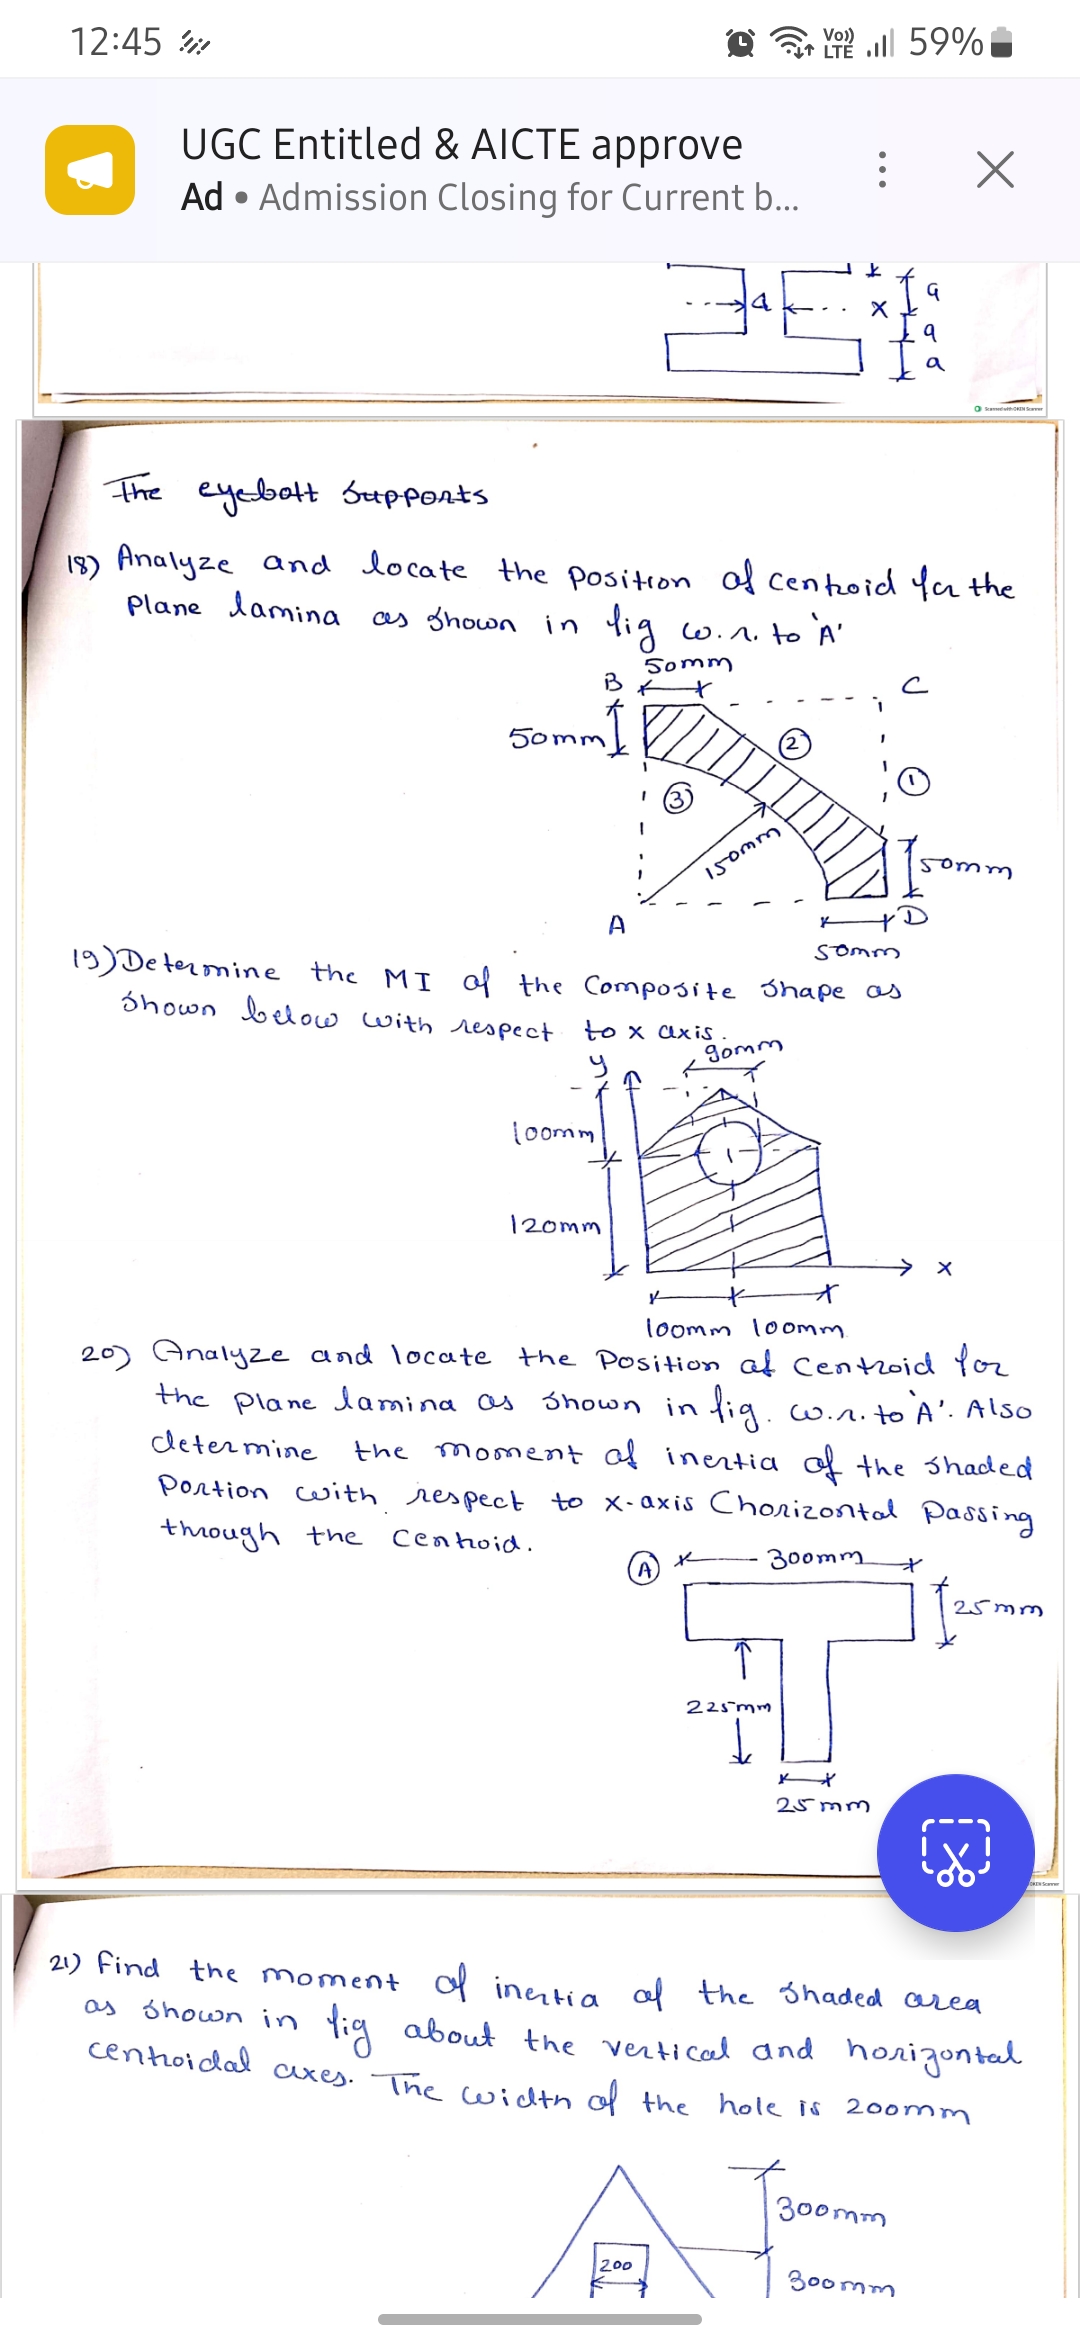 12:45
Vo)) LTE 59%
UGC Entitled & AICTE approve
Ad • Admission Closing for Current b...
a
x
a
a
a
Scanned with OKEN Scanner
The eyebolt supports
18) Analyze and locate the position of centroid for the
Plane lamina as shown in fig w.r. to 'A'
50mm
B
C
50mm
2
1
3
150mm
50mm
A
D
50mm
19) Determine the MI of the Composite shape as
shown below with respect to x axis.
90mm
y
100mm
120mm
x
100mm 100mm
20) Analyze and locate the Position of Centroid for
the plane lamina as shown in fig. w.r. to 'A'. Also
determine the moment of inertia of the shaded
Portion with respect to x-axis Chorizontal Passing
through the Centroid.
A
300mm
25mm
225mm
25mm
OKEN Scanner
21) Find the moment of inertia of the shaded area
as shown in fig about the vertical and horizontal
centroidal axes. The width of the hole is 200mm
300mm
200
300mm